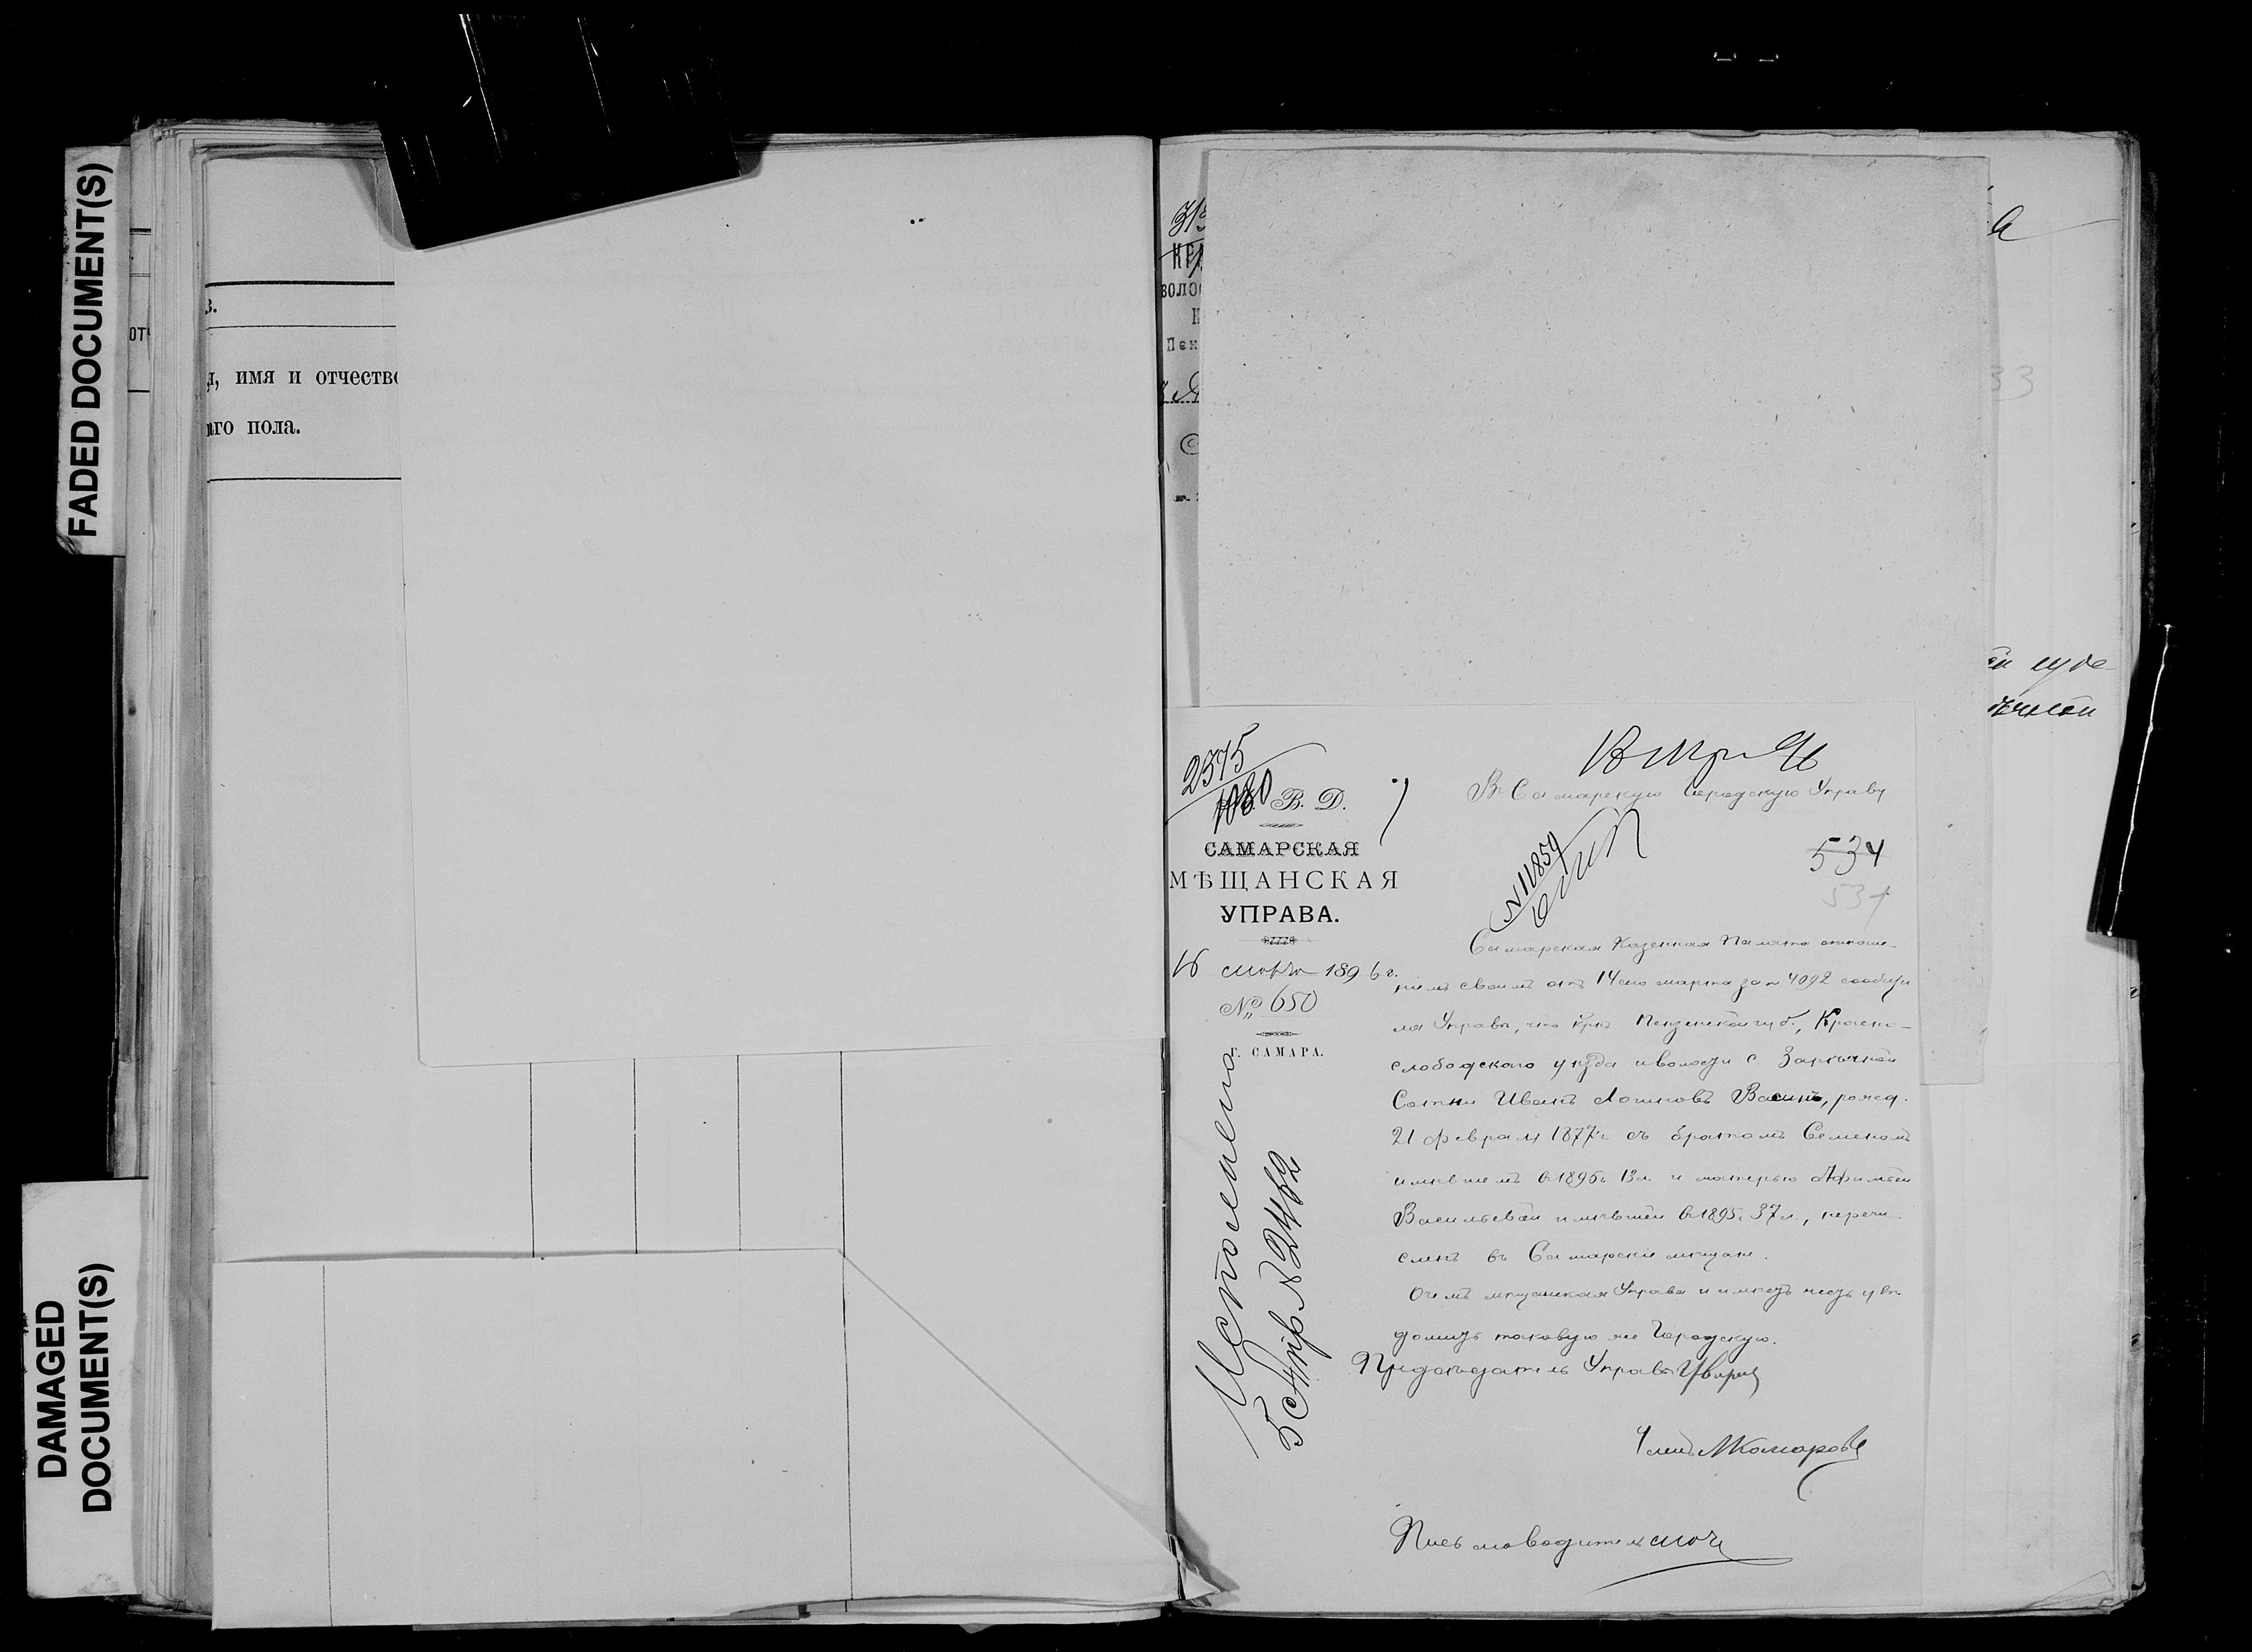 FADED DOCUMENT(S)
DAMAGED
DOCUMENT(S)
в.
я, имя и отчество
аго пола.
КРА
воло
Пен
33
2375
1080
В. Д.
САМАРСКАЯ
МѢЩАНСКАЯ
УПРАВА.
16 марта 1896 г.
№ 650
Г. САМАРА.
Исполнено
5 Апр № 2462
Въ Самарскую Городскую Управу
№ 11859
534
534
Самарская Казенная Палата отноше-
ніемъ своимъ отъ 14 сего марта за № 4092 сообщи
ла Управѣ, что кр. Пензенской губ., Красно-
слободскаго уѣзда и волости с. Зарѣчной
Сотни Иванъ Логиновъ Васинъ, рожд.
21 февраля 1877 г. съ братомъ Семеномъ
имѣвшемъ в 1895 г. 13 л. и матерью Афимьей
Васильевой имѣвшей в 1895 г. 37 л., перечи
сленъ въ Самарскіе мѣщане.
О чемъ мѣщанская Управа и имѣетъ честь увѣ
домить таковую же Городскую.
Предсѣдатель Управы
Членъ МКомаровъ
Письмоводитель